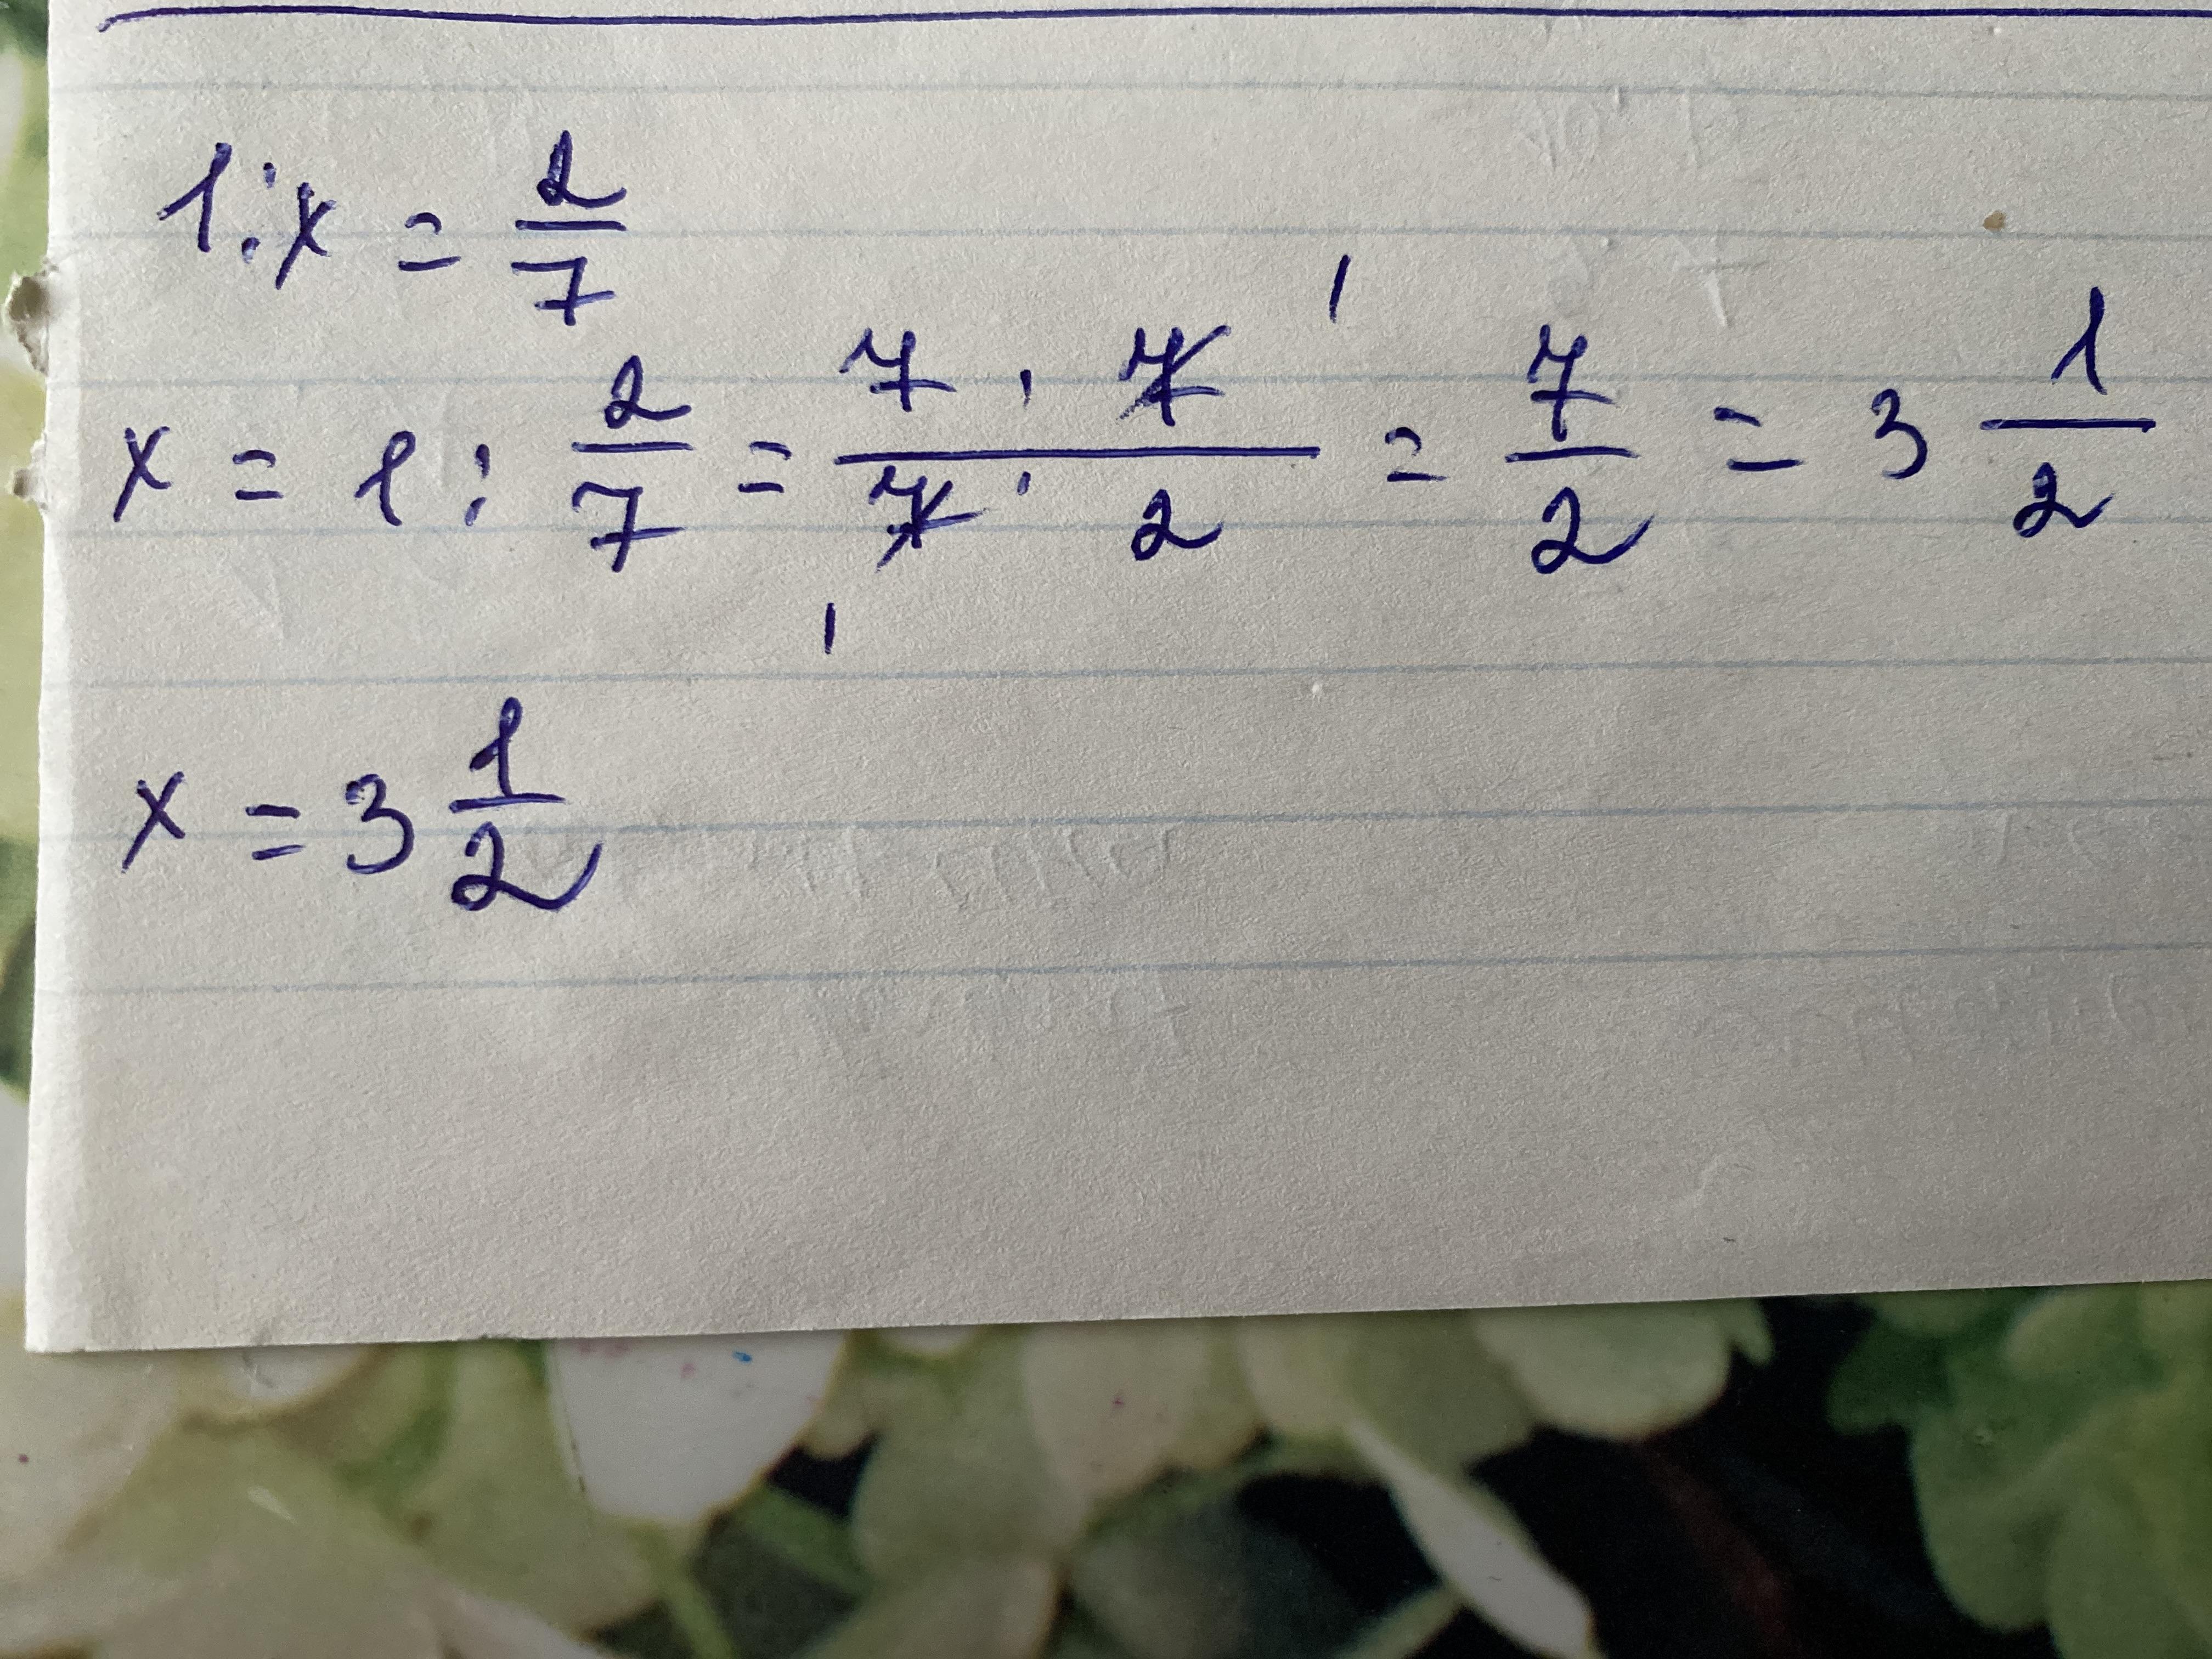 1 : x = 2/7
x = 1 : 2/7 = (7 · 7)/(7 · 2) = 7/2 = 3 1/2
x = 3 1/2